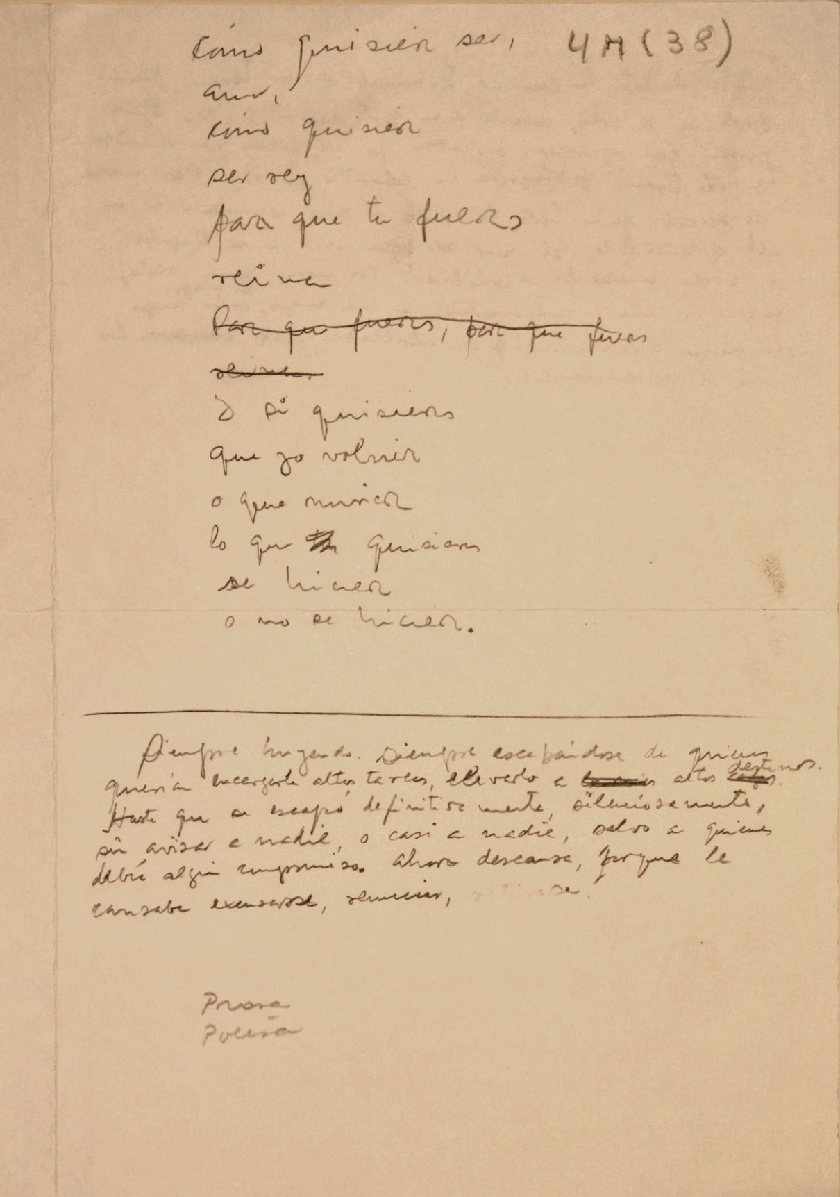 Cómo quisiera ser, 4M (38)
amor,
cómo quisiera
ser rey
para que tu fueras
reina
Para que fueras, para que fueras
reina.
O si quisieras
que yo volviera
o que muriera
lo que quisieras
se hiciera
o no se hiciera.
Siempre huyendo. Siempre escapándose de quienes
querían encargarle altas tareas, elevarlo a altos destinos.
Hasta que se escapó definitivamente, silenciosamente,
sin avisar a nadie, o casi a nadie, salvo a quienes
debía algún compromiso. Ahora descansa, porque le
cansaba excusarse, renunciar,
Prosa
Poesía